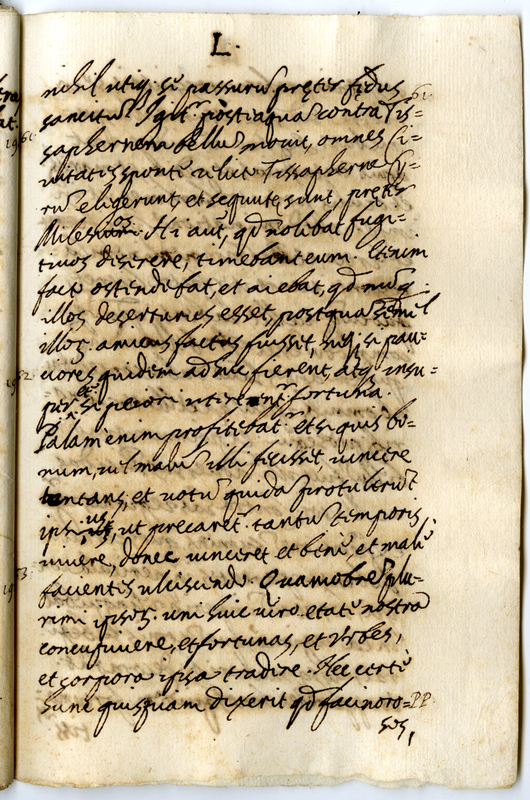 L.
nihil utiq; se passurũ preter fędus
sancitũ. Igit.r postiaquã contra Tis=
saphernem bellũ mouit, omnes Ci=
uitates spontè relicto Tissapherne Cy=
rũ eligerunt, et sequutę sunt, pręter
Milesios. Hi aũt, qd nolebat fugi=
tiuos deserere, timebant eum. Etenim
facto ostendebat, et aiebat, qd nũq.
illos deserturus esset, postquã semel
illoȝ. amicus factus fuisset, neq; si pau=
ciores quidem adhuc fierent, atq; insu=
per et si peiori uterent.r fortuna.
Palam enim profitebat.r etsi quis bo=
num, uel malũ illi fecisset, uincere
tentans, et uotũ quidã protulerũt
ipsius, ut precaret.r tantũ temporis
uiuere, donec uinceret et benè, et malè
facientes ulciscendo. Quamobrẽ plu=
rimi ipsoȝ. uni huic uiro etate nostra
concupiuere, et fortunas, et Vrbes,
et corpora ipsa tradere. Nec certè
hunc quisquam dixerit qd facinoro=
sos,